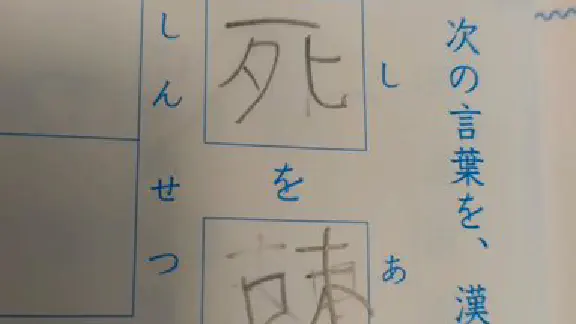 次の言葉を、漢
し あ
死を
しんせつ